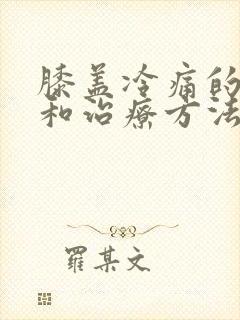 膝盖冷痛的
和治疗方法
羅某文